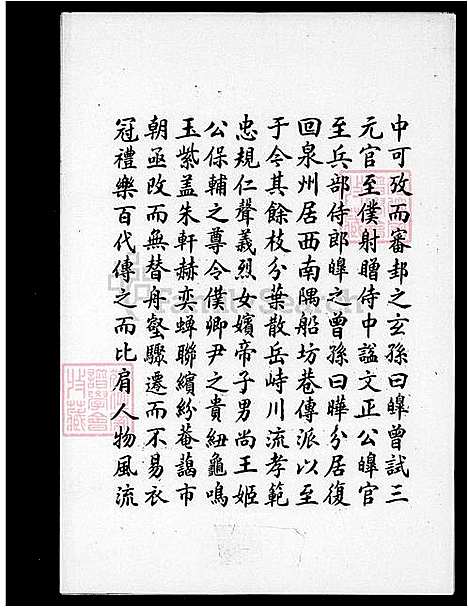 中可攷而審邽之玄孫曰皡曾試三
元官至僕射贈侍中諡文正公皡官
至兵部侍郎皡之曾孫曰曄分居復
回泉州居西南隅船坊巷傳派以至
于今其餘枝分葉散岳峙川流孝範
忠規仁聲義烈女嬪帝子男尚王姬
公保輔之尊令僕卿尹之貴紐龜鳴
玉紫盖朱軒赫奕蟬聯繽紛菴藹市
朝亟改而無替舟壑驟遷而不易衣
冠禮樂百代傳之而比肩人物風流